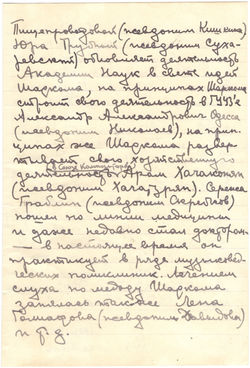 Пищепроводовой (псевдоним Кишкина)
Юра Трубный (псевдоним Суха-
ревский) обновляет деятельность
Академии Наук в свете идей
Шаркома, на принципах Шаркома
строит свою деятельность в ГУУЗ'е
Александр Александрович Одесса
(псевдоним Николаев), на прин-
ципах же Шаркома развер-
тывает свою
деятельность Арам Хачаконян
(псевдоним Хачатурян). Сережа
Граблин (псевдоним Скребков)
пошел по линии медицины
и даже недавно стал доктором
— в настоящее время он
практикует в ряде музыковед-
ческих поликлиник. Лечением
слуха по методу Шаркома
занялась также Лена
(псевдоним Давыдова)
и т. д.